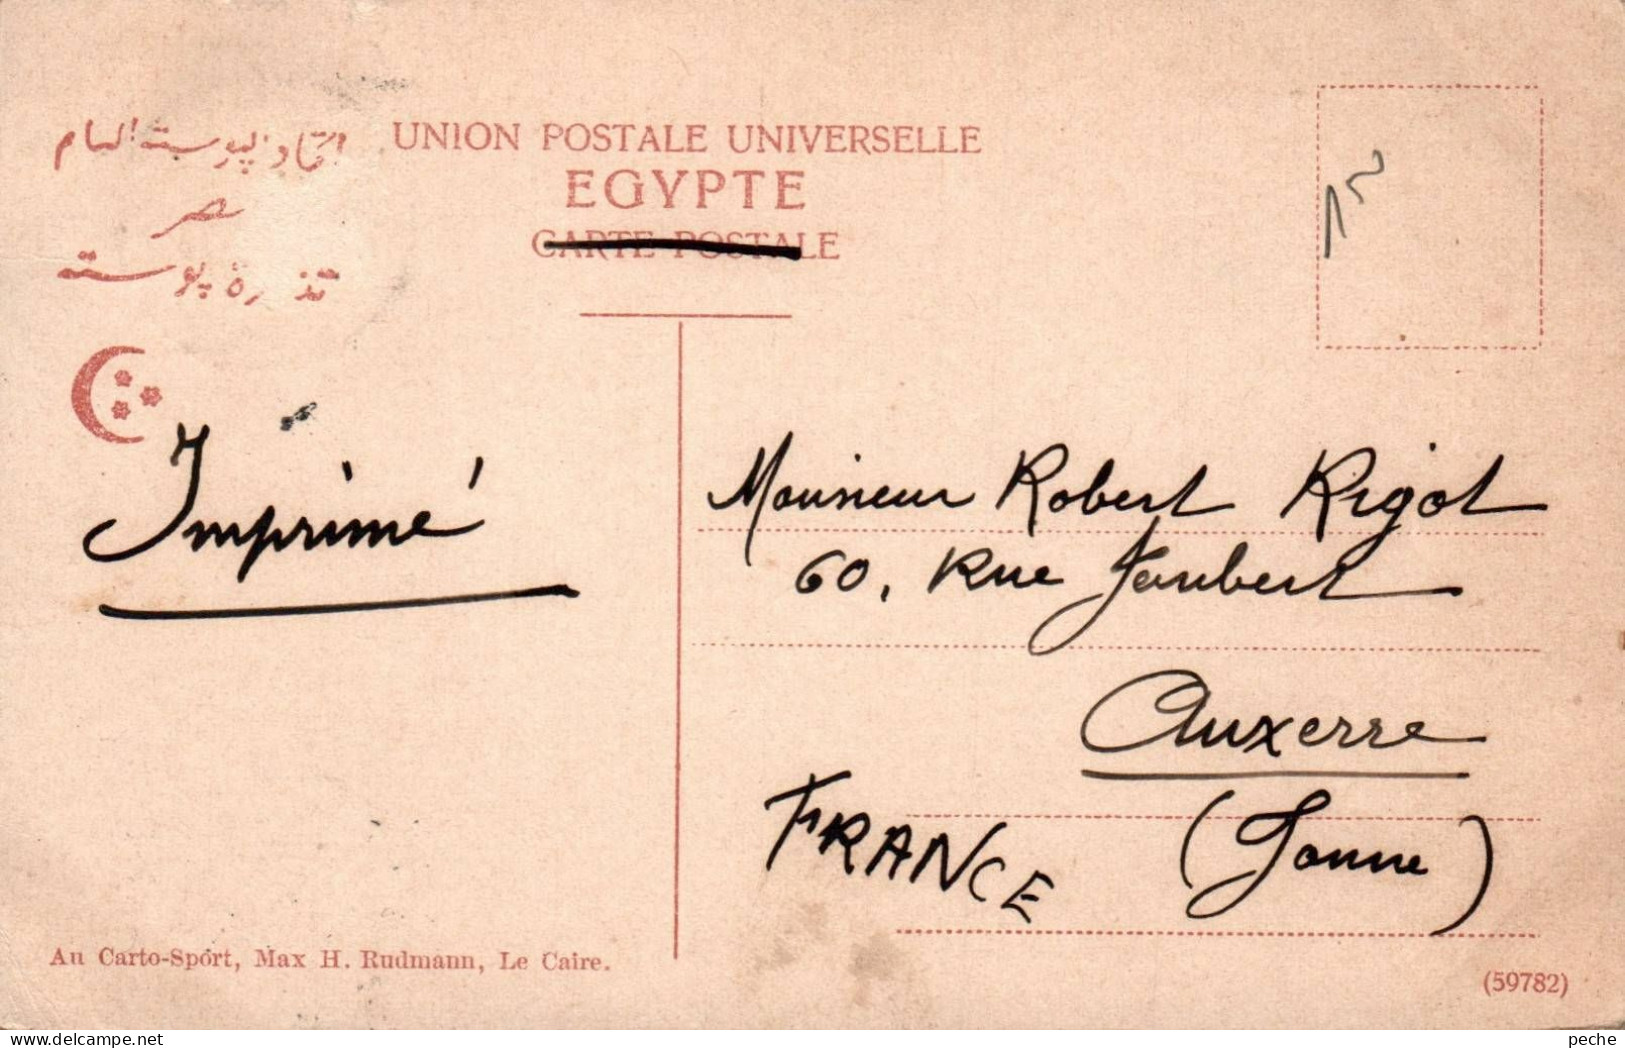 اتحاد پوسته العام
UNION POSTALE UNIVERSELLE
مصر
EGYPTE
CARTE POSTALE
تذكرة پوسته
Imprimé
Monsieur Robert Rigot
60, Rue Joubert
Auxerre
(Yonne)
FRANCE
Au Carto-Sport, Max H. Rudmann, Le Caire.
(59782)
peche